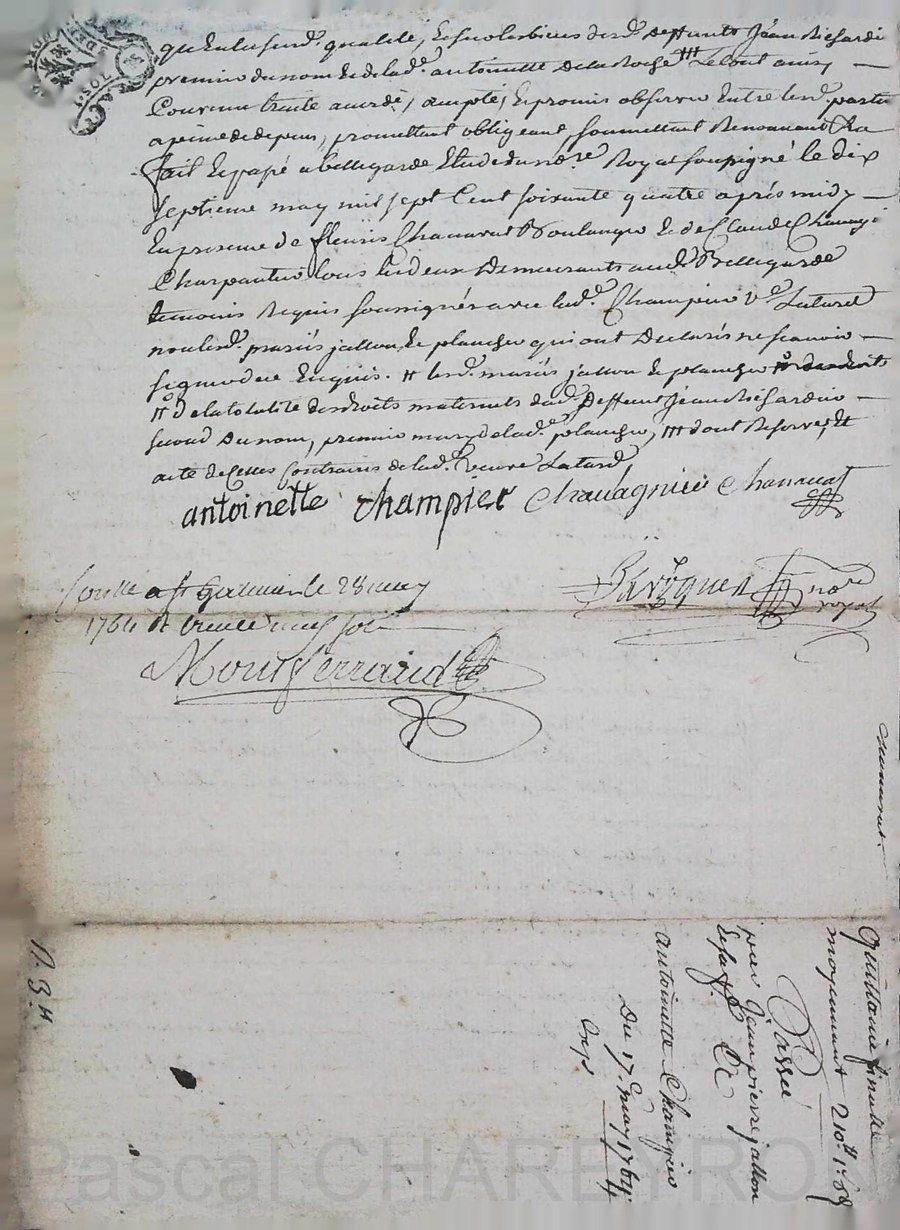 qualité, et sur les biens desd. deffunts Jean Richardin
premier du nom et de lad.e antoinette Delaroche ttt Le tout ainsy
Convenu traité accordé, accepté, et promis observer Entre lesd. parties
a peine de depens, promettant obligeant, soumettant Renonçant &a
fait et passé a bellegarde Etude du no.re Royal soussigné le dix
septieme may mil sept Cent soixante quatre après midy
En presence de fleuris Chanavat Boulanger Et de Claude
Charpentier tous les deux Demeurants aud. Bellegarde
temoins Requis soussignés avec lad.e Champier v.e Latard
non lesd. mariés jallon et plancher qui ont Declarés ne sçavoir
signer de ce Enquis. tt lesd. mariés jallon et planchet
de la totalité des droits maternels dud. Deffunt Jean Richardin
second du nom, premier mary de lad.e planchet, ttt dont Reserve, Et
acte de Celles Contraires de lad. veuve Latard
antoinette Champier Chavagnieu Chanavat
no.re
royal
Con.llé a st Galmier le 28 may
1764 R. treize sols
Montferrand
Chanavat
Quittance finalle
moyennant 210tt
Passée
par Jean pierre jallon
et sa f.e &
antoinette Champier
Du 17. may 1764
Exp
n. 3.
Pascal CHAREYRON